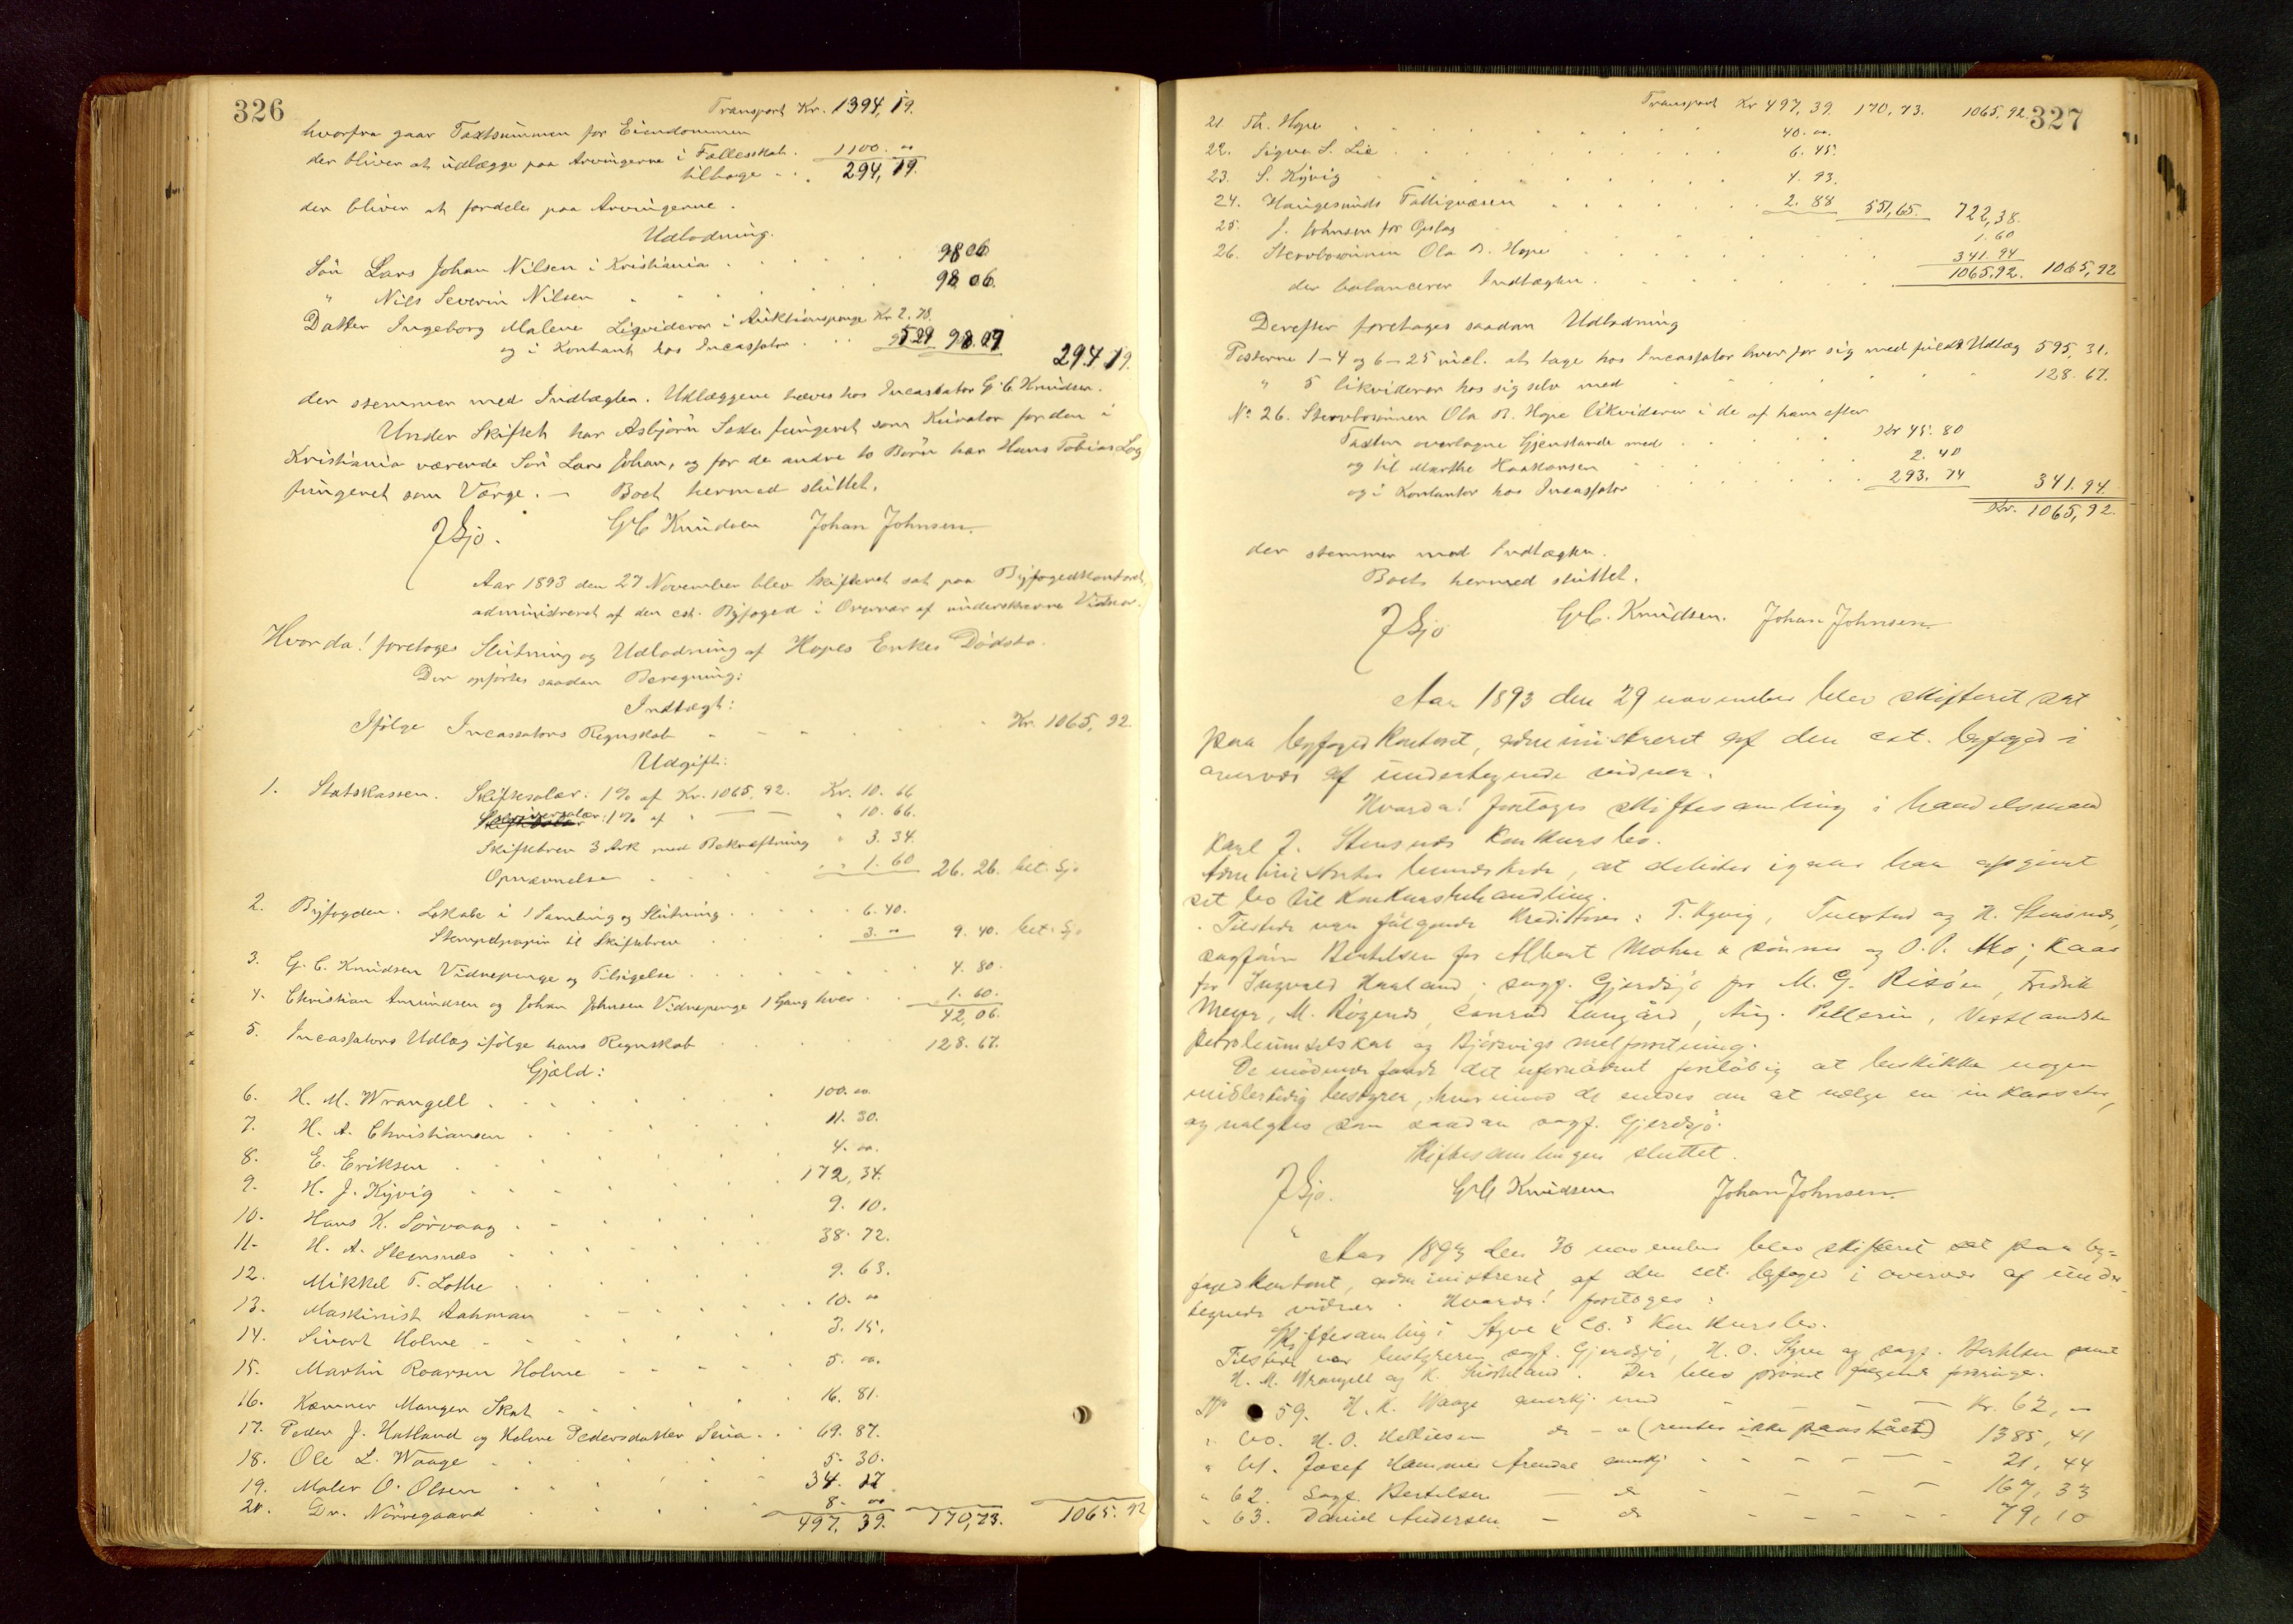 326
Transport Kr. 1394, 19.
hvorfra gaar Taxtsummen for Eiendommen
der bliver at udlægge paa Arvingerne i Fællesskab. 1100. 00
tilbage 294, 19.
der bliver at fordele paa Arvingerne.
Udlodning.
Søn Lars Johan Nilsen i Kristiania 98 06
" Nils Severin Nilsen 98 06.
Datter Ingeborg Malene Liqviderer i Auktionspenge Kr 2. 78.
og i Kontant hos Incassator 95 29 98. 07 294. 19.
der stemmer med Indtægten. Udlæggene hæves hos Incassator G. C. Knudsen.
Under Skiftet har Asbjørn fungeret som Kurator for den i
Kristiania værende Søn Lars Johan, og for de andre to Børn har Hans Tobias
fungeret som Værge. — Boet hermed sluttet.
J Gjo. G C Knudsen Johan Johnsen.
Aar 1893 den 27 November blev Skifteret sat paa Byfogedkontoret,
administreret af den cst. Byfoged i Overvær af underskrevne Vidner.
Hvorda! foretoges Slutning og Udlodning af Hopes Enkes Dødsbo.
Der opførtes saadan Beregning:
Indtægt:
Ifølge Incassators Regnskab Kr. 1065, 92
Udgift:
1. Statskassen. Skiftesalær: 1% af Kr. 1065, 92. Kr. 10. 66
Skriversalær: 1% af " — — " 10. 66.
Skiftebrev 3 Ark med Bekræftning " 3. 34.
Opnævnelse " 1. 60 26. 26. bet. Gjo
2. Byfogden. Lokale i 1 Samling og Slutning 6. 40.
Stempelpapir til Skiftebrev 3. 00 9. 40. bet. Gjo
3. G. C. Knudsen Vidnepenge og Tilsigelse 4. 80.
4. Christian Amundsen og Johan Johnsen Vidnepenge 1 Gang hver 1. 60.
42, 06.
5. Incassators Udlæg ifølge hans Regnskab 128. 67.
Gjæld:
6. H. M. Wrangell 100. 00
7. H. A. Christiansen 11. 30.
8. E. Eriksen 4. 00.
9. H. J. Kyvig 172, 34.
10. Hans K. Sørvaag 9. 10.
11. H. A. Stensnæs 38. 72.
12. Mikkel T. Lothe 9. 63.
13. Maskinist Aahman 10. 00
14. Sivert Holme 3. 15.
15. Martin Roarsen Holme 5. 00.
16. Kæmner Manger Skat 16. 81.
17. Peder J. Hatland og Helene Pedersdatter 69. 87.
18. Ole L. Waage 5. 30.
19. Maler O. Olsen 34. 17
20. Dr. Nørregaard 8. 00
497. 39. 170,73. 1065. 92
327
Transport Kr 497, 39. 170, 73. 1065, 92.
21. Th. Hope 40. 00.
22. Signe S. Lie 6. 45.
23. S. Kyvig 4. 93.
24. Haugesunds Fattigvæsen 2. 88 551,65. 722,38.
25. J. Johnsen for Opslag 1. 60
26. Stervbosønnen Ola B. Hope 341. 94
der balancerer Indtægten 1065, 92. 1065, 92
Derefter foretoges saadan Udlodning
Posterne 1-4 og 6-25 incl. at tage hos Incassator hver for sig med fuldt Udlæg 595, 31.
" 5 likviderer hos sig selv med 128. 67.
No 26. Stervbosønnen Ola B. Hope likviderer i de af ham efter
Taxten overtagne Gjenstande med Kr 45. 80
og til Marthe Haakonsen 2. 40
og i Kontanter hos Incassator 293. 74 341. 94.
Kr. 1065, 92.
der stemmer med Indtægten.
Boets hermed sluttet.
J Gjo G C. Knudsen. Johan Johnsen.
Aar 1893 den 29 november blev skifteret sat
paa byfogedkontoret, administreret af den cst. byfoged i
overvær af undertegnede vidner.
Hvorda! foretoges skiftesamling i handelsmand
Karl J. Stensnæs konkursbo.
Administrator bemærkede, at debitor igaar har afgivet
sit bo til konkursbehandling.
Tilstede var følgende kreditorer: T. Kyvig, og H. Stensnæs,
sagfører Bertelsen for Albert Mohn & sønner og O. P. Moe; Kaas
for Ingvald Haaland; sagf. Gjerdsjø for M. G. Risøen, Fredrik
Meyer, M. Røgenæs, Conrad Langård, Aug. Pellerin, Vestlandske
petroleumselskab og Bjørsvigs melforretning.
De mødende fandt det ufornødent foreløbig at beskikke nogen
midlertidig bestyrer, hvorimod de enedes om at vælge en inkassator,
og valgtes som saadan sagf. Gjerdsjø.
Skiftesamlingen sluttet.
J Gjo. G C Knudsen Johan Johnsen.
Aar 1893 den 30 november blev skifteret sat paa by=
fogedkontoret, administreret af den cst. byfoged i overvær af under
tegnede vidner. Hvorda! foretoges:
Skiftesamling i Styve & Co.s konkursbo.
Tilstede var bestyreren sagf. Gjerdsjø, H. O. Styve og sagf. Bertelsen samt
H. M. Wrangell og K. . Der blev prøvet følgende fordringer.
No 59. H. K. Waage anerkj. med Kr. 62, —
" 60. H. O. Helliesen do - (renter ikke paastået) 1385, 41
" 61. Josef Hammer Arendal anerkj 21, 44
" 62. Sagf. Bertelsen — do 167, 33
" 63. Daniel Andersen — do 79, 10